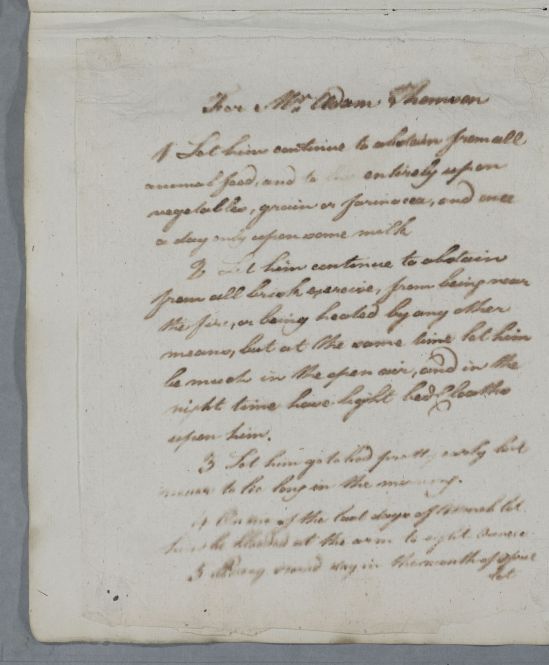 For Mr Adam Thomson
1 Let him continue to abstain from all
animal food, and to live entirely upon
vegetables, grain or farinacea, and once
a day only upon some milk
2 Let him continue to abstain
from all brisk exercise, from being near
the fire, or being heated by any other
means, but at the same time let him
be much in the open air, and in the
night time have light bed Cloaths
upon him.
3 Let him go to bed pretty early but
never to lie long in the morning.
4 On one of the last days of March let
him be blooded at the arm to eight ounces
5 Every second day in the month of April
let